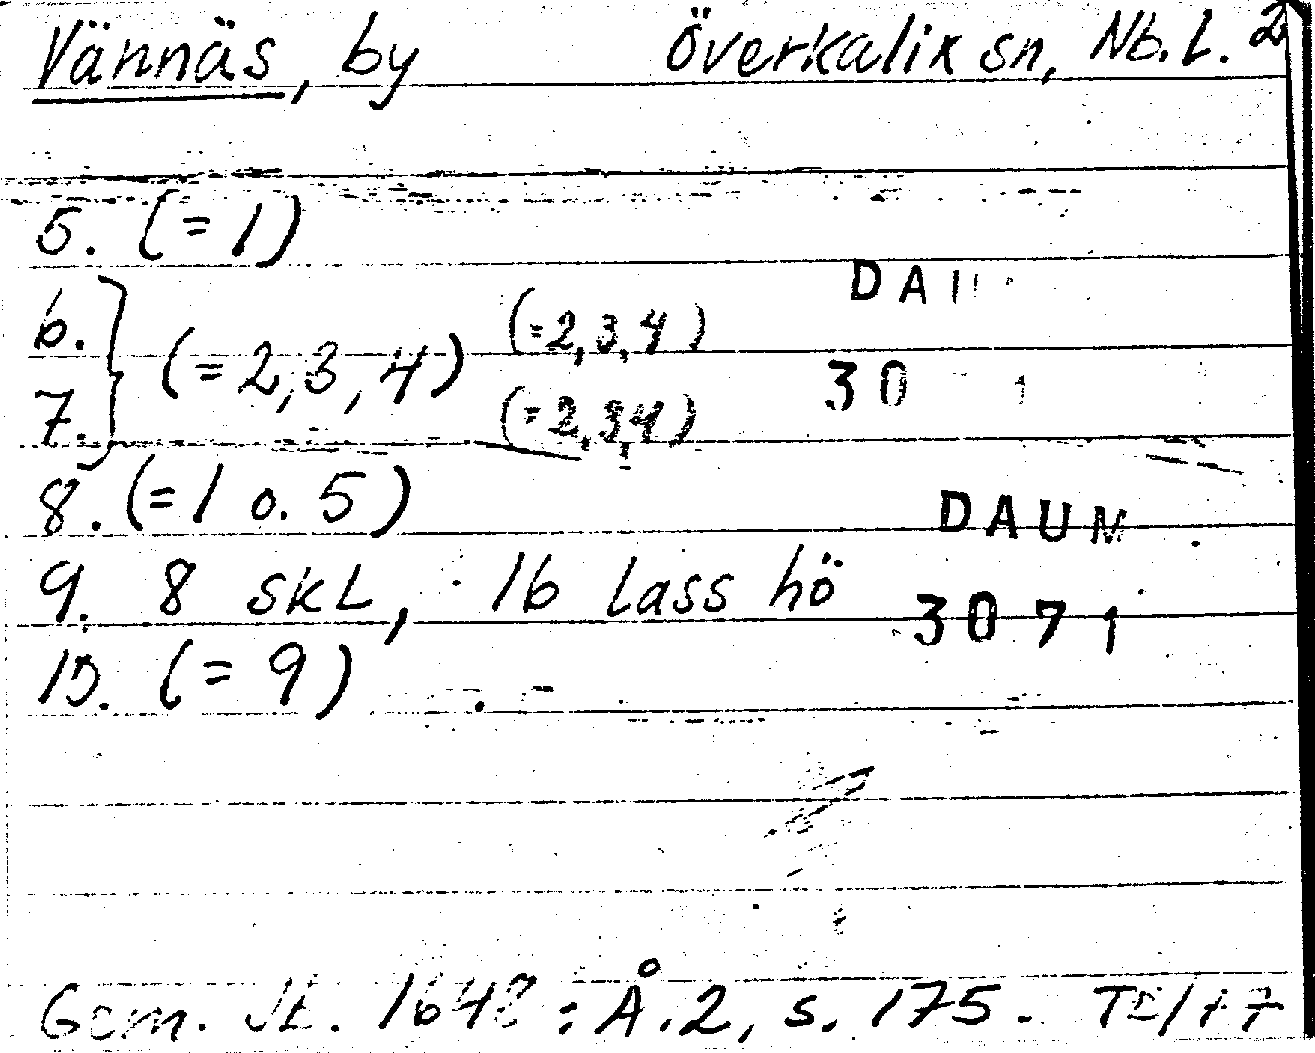 Vännäs, by Överkalix sn, Nb. L. 2
5. (= 1)
6. } (= 2, 3, 4) (= 2, 3, 4)
7. } (= 2, 3, 4)
8. (= 1 o. 5)
9. 8 skL, 16 lass hö
10. (= 9)
DA
30 1
DAUM
3071
Gem. Jt. 1648: Å. 2, s. 175.